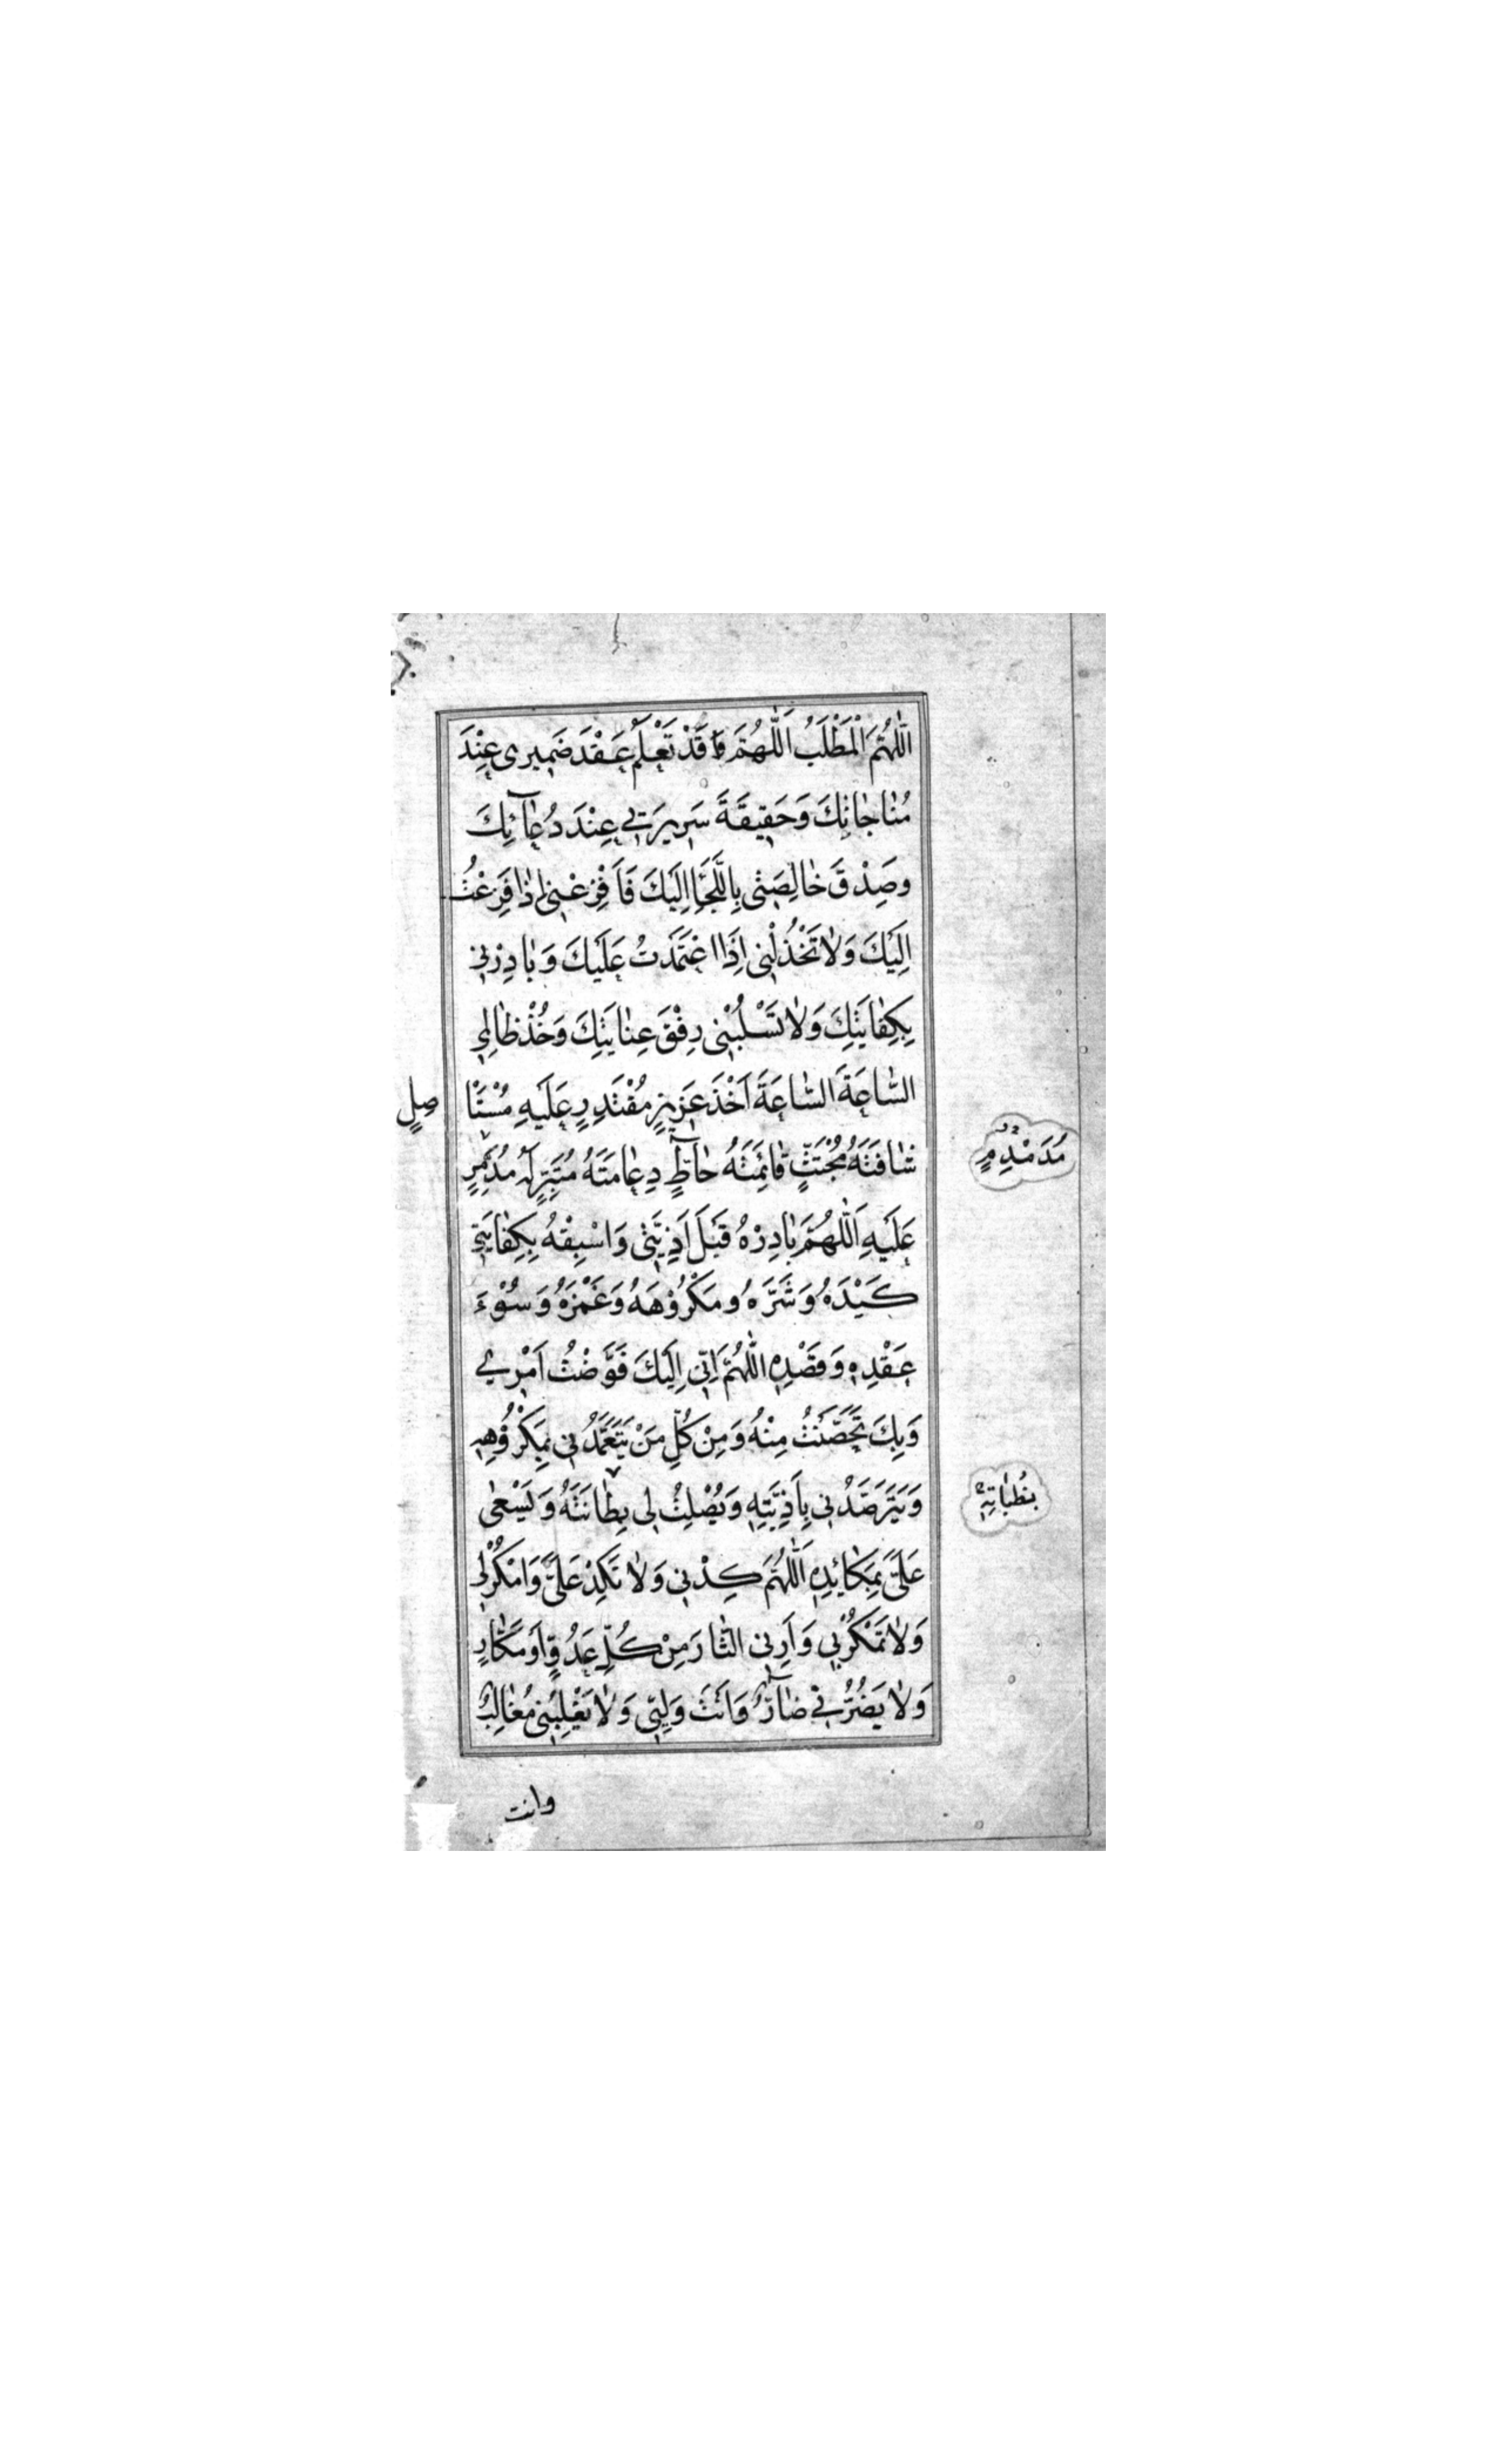 اَللّٰهُمَّ الْمَطْلَبُ اَللّٰهُمَّ قَدْ تَعْلَمُ عَقْدَ ضَمِيرى عِنْدَ
مُنٰاجٰاتِكَ وَحَقِيقَةَ سَرِيرَتِي عِنْدَ دُعٰآئِكَ
وصَِدْقَ خٰالِصَتى بِاللَّجَإِ اِلَيْكَ فَاَفْزِعْنِى اِذٰا فَزِعْتُ
اِلَيْكَ وَلٰا تَخْذُلْنِى اِذَا اعْتَمَدْتُ عَلَيْكَ وَبٰادِرْنِي
بِكِفٰايَتِكَ وَلٰا تَسْلُبْنِى رِفْقَ عِنٰايَتِكَ وَخُذْ ظٰالِمِي
السّٰاعَةَ السّٰاعَةَ اَخْذَ عَزِيزٍ مُقْتَدِرٍ عَلَيْهِ مُسْتَأْ
صِلٍ
شٰافَتَهُ مُجْتَثٍّ قٰائِمَتَهُ حٰآطٍّ دِعٰامَتَهُ مُتَبِّرٍ لَهُ مُدَمِّرٍ
مُدَمْدِمٍ
عَلَيْهِ اَللّٰهُمَّ بٰادِرْهُ قَبْلَ اَذِيَّتى وَاسْبِقْهُ بِكِفٰايَتِي
كَيْدَهُ وَشَرَّهُ ومَكْرُوْهَهُ وَغَمْزَهُ وَسُوْءَ
عَقْدِهِ وَقَصْدِهِ اَللّٰهُمَّ اِنِّي اِلَيْكَ فَوَّضْتُ اَمْرِي
وَبِكَ تَحَصَّنْتُ مِنْهُ وَمِنْ كُلِّ مَنْ يَتَعَمَّدُنِي بِمَكْرُوْهِهِ
وَيَتَرَصَّدُنِي بِاَذِيَّتِهِ وَيُصْلِتُ لِى بِطٰانَتَهُ وَيَسْعىٰ
عَلَىَّ بِمَكٰايِدِهِ اَللّٰهُمَّ كِدْنِي وَلٰا تَكِدْ عَلَىَّ وَامْكُرْ لِي
وَلٰا تَمْكُرْ بِي وَاَرِنِي الثّٰارَ مِنْ كُلِّ عَدُوٍّ اَوْ مَكّٰارٍ
وَلٰا يَضُرُّنِي ضٰآرٌّ وَاَنْتَ وَلِيّى وَلٰا يَغْلِبُنِى مُغٰالِبٌ
وانت